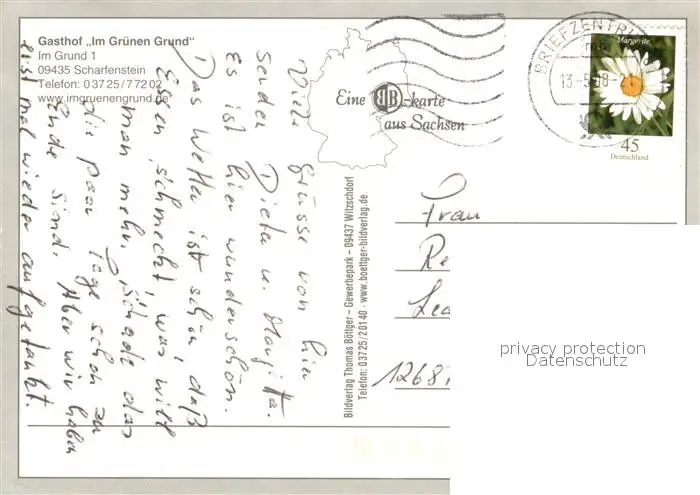 Gasthof „Im Grünen Grund"
Im Grund 1
09435 Scharfenstein
Telefon: 03725/77202
www.imgruenengrund.de
Eine BB-karte
aus Sachsen
BRIEFZENTRUM
13.-5.08-
Margerite
45
Deutschland
Viele Grüsse von hier
senden Dieter u. Margitta.
Es ist hier wunderschön.
Das Wetter ist schön, daß
Essen schmeckt, was will
man mehr. Schade das
die paar Tage schon zu
Ende sind. Aber wir haben
erst mal wieder aufgetankt.
Bildverlag Thomas Böttger – Gewerbepark – 09437 Witzschdorf
Telefon: 03725/20140 · www.boettger-bildverlag.de
Frau
Re
Lea
1268
privacy protection
Datenschutz